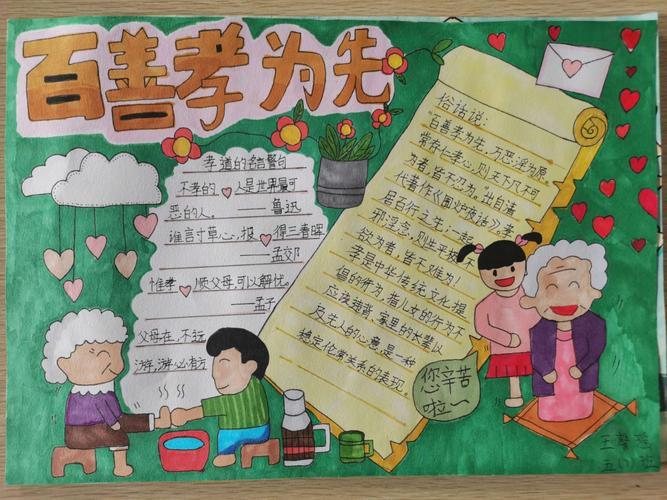 百善孝为先
孝道的名言警句
不孝的人是世界最可
恶的人。 鲁迅
谁言寸草心，报得三春晖
——孟郊
惟孝顺父母，可以解忧。
——孟子
父母在，不远
游，游必有方
俗话说：
"百善孝为先，万恶淫为原
常存仁孝心，则天下凡不可
为者，皆不忍为"出自清
代著作《围炉夜话》。孝
居百行之先，一起
邪淫念，则生平极不
欲为者，皆不难为！
孝是中华传统文化提
倡的行为，指儿女的行为不
应该违背家里的长辈以
及先人的心意是一种
稳定伦常关系的表现。
您辛苦
啦~
五(1)班